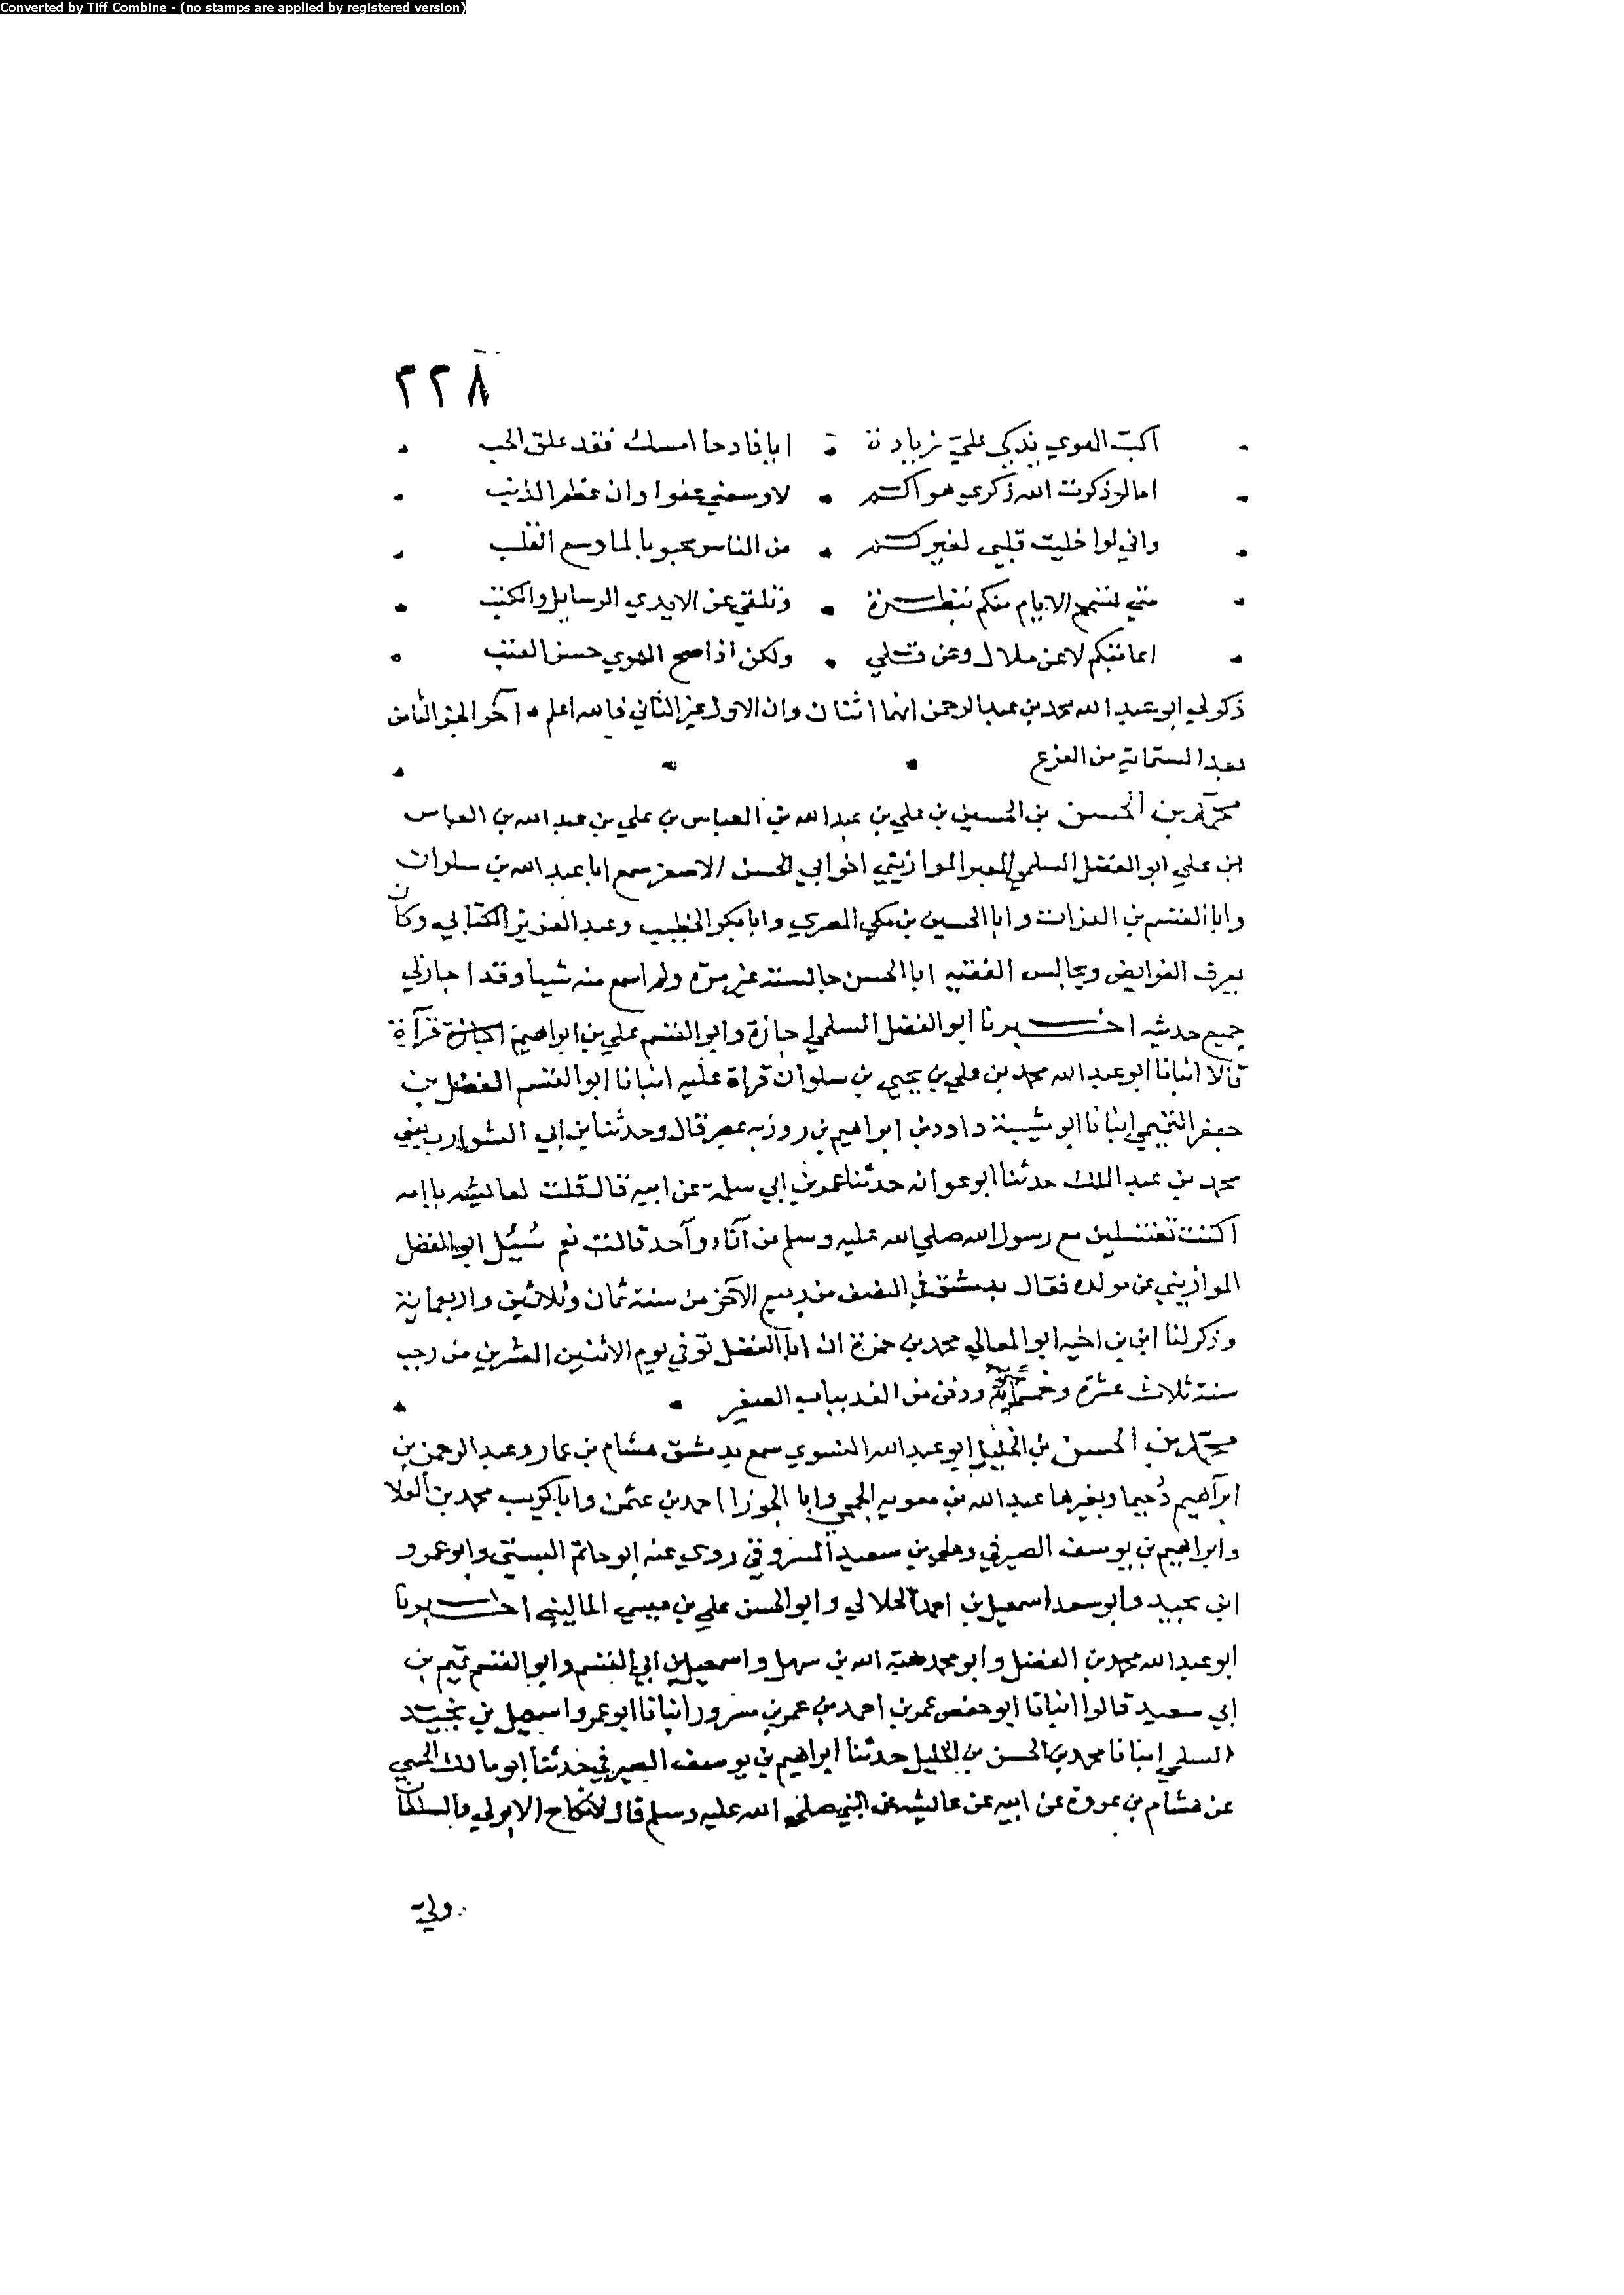 Converted by Tiff Combine - (no stamps are applied by registered version)
٢٢٨
اكب الهوي يذكي علي زياده ايا قادحا امسك فقد علق الحب
اما لو ذكرت الله ذكري هواكم لاوسعني عفوا وان عظم الذنب
واني لو اخليت قلبي لغيركم من الناس محبوبا لما وسع القلب
متي تسمح الايام منكم بنظرة وتلقي عن الايدي الرسايل والكتب
اعاتبكم لا عن ملال وعن قلي ولكن اذا صح الهوي حسن العتب
ذكر لي ابو عبد الله محمد بن عبد الرحمن انهما اثنان وان الاول غير الثاني فالله اعلم آخر الجزء الثامن
بعد الستماية من الفرع
محمد بن الحسن بن الحسين بن علي بن عبد الله بن العباس بن علي بن عبد الله بن العباس
ابن علي ابو الفضل السلمي المعبر الموازيني اخو ابي الحسن الاصغر سمع ابا عبد الله بن سلوان
وابا القسم بن الفرات وابا الحسين بن مكي المصري وابا بكر الخطيب وعبد العزيز الكتاني وكان
يعرف الفرايض ويجالس الفقيه ابا الحسن جالسته غير مره ولم اسمع منه شيا وقد اجاز لي
جميع حديثه اخبرنا ابو الفضل السلمي اجازة وابو القسم علي بن ابراهيم قرآة
قالا انبانا ابو عبد الله محمد بن علي بن يحيي بن سلوان قراة عليه انبانا ابو القسم الفضل بن
جعفر التميمي انبانا ابو شيبة داود بن ابراهيم بن روزبه بمصر قال وحدثنا بن ابي الشوارب يعني
محمد بن عبد الملك حدثنا ابو عوانه حدثنا عمر بن ابي سلمة عن ابيه قال قلت لعايشه يا امه
اكنت تغتسلين مع رسول الله صلي الله عليه وسلم من آناء وآحد قالت نعم سُئيل ابو الفضل
الموازيني عن مولده فقال بدمشق في النصف من ربيع الآخر من سنة ثمان وثلاثين واربعماية
وذكر لنا ابن بن اخيه ابو المعالي محمد بن حمزة ان ابا الفضل توفي يوم الاثنين العشرين من رجب
سنة ثلاث عشرة وخمسماية ودفن من الغد بباب الصغير
محمد بن الحسن بن الخليل ابو عبد الله النسوي سمع بدمشق هشام بن عمار وعبد الرحمن بن
ابرآهيم دُحيما وبغيرها عبد الله بن معويه الجمحي وابا الجوزا احمد بن عثمن وابا كريب محمد بن العلا
وابراهيم بن يوسف الصيرفي وعلي بن سعيد المسروقي روي عنه ابو حاتم البستي وابو عمرو
ابن نجيد وابو سعد اسمعيل بن احمد الخلالي وابو الحسن علي بن عيسي الماليني اخبرنا
ابو عبد الله محمد بن الفضل وابو محمد هبة الله بن سهل واسمعيل بن ابي القسم وابو القسم تميم بن
ابي سعيد قالوا انبانا ابو حفص عمر بن احمد بن عمر بن مسرور انبانا ابو عمرو اسمعيل بن نجيد
السلمي انبانا محمد بن الحسن بن الخليل حدثنا ابراهيم بن يوسف الصيرفي حدثنا ابو مالك الجنبي
عن هشام بن عروة عن ابيه عن عايشه عن النبي صلي الله عليه وسلم قال لا نكاح الا بولي والسلطان
ولي